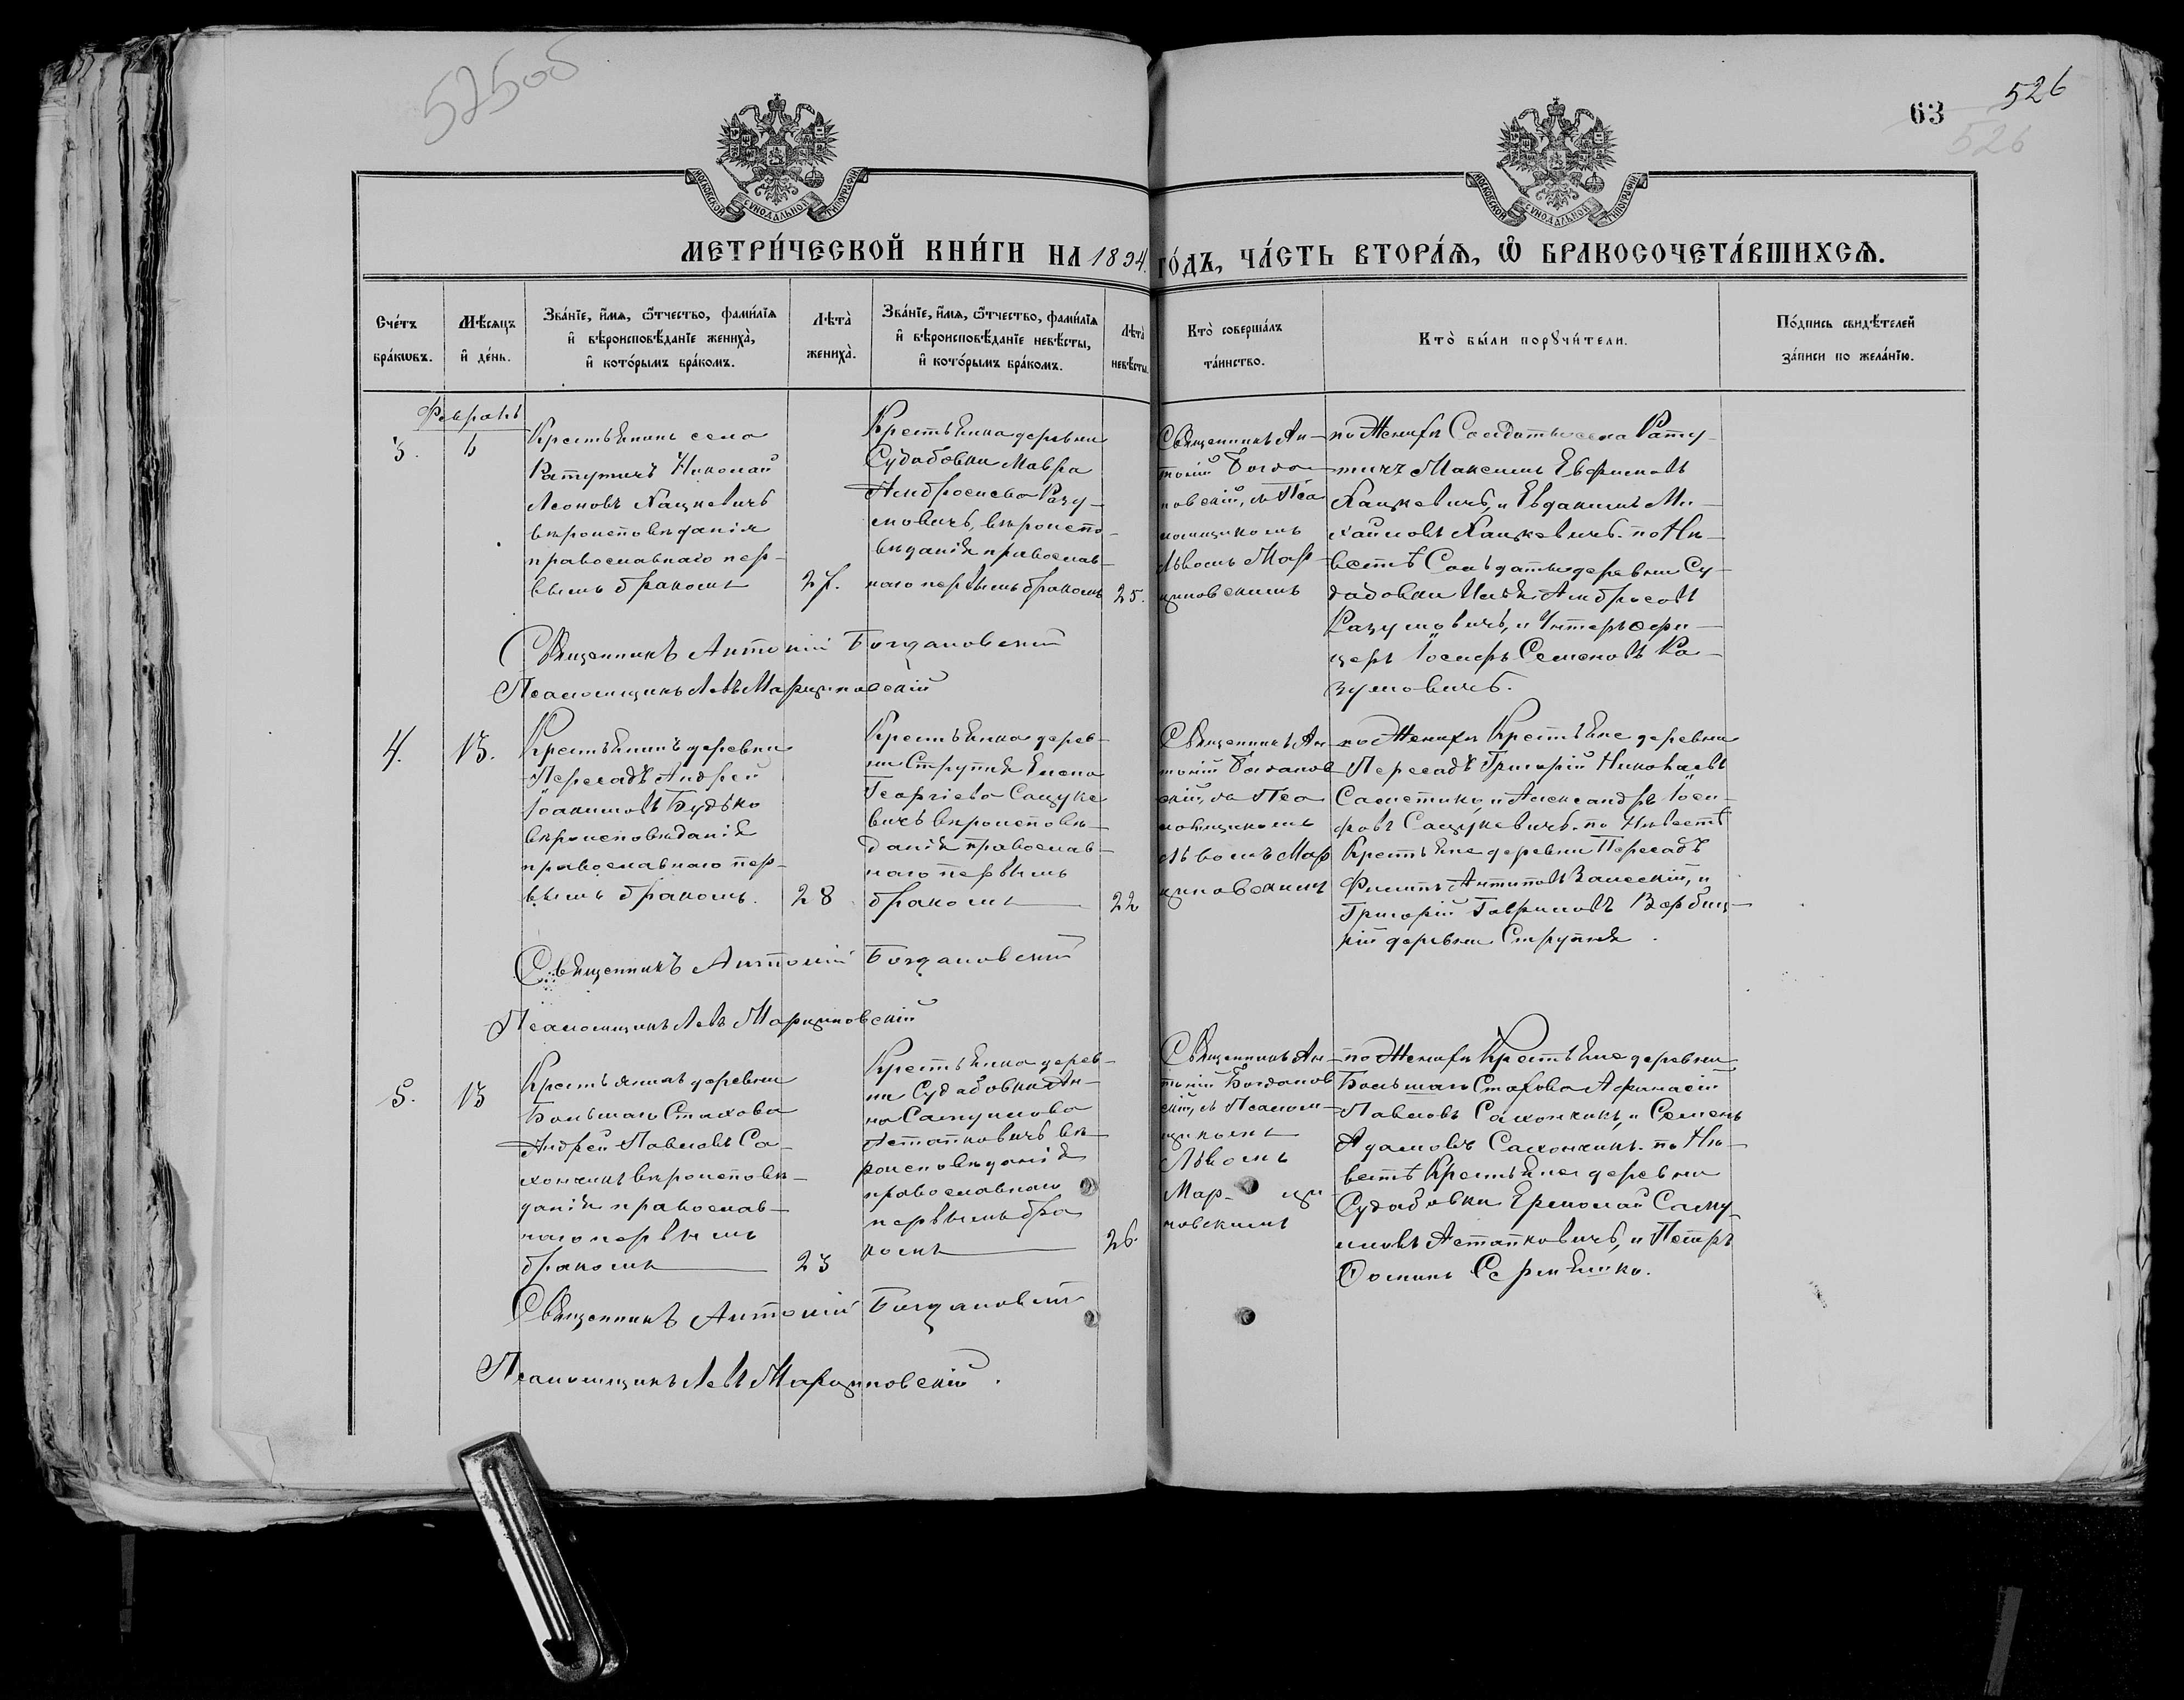 525об
63
526
526
МОСКОВСКОЙ СѴНОДАЛЬНОЙ ТИПОГРАФІИ
МОСКОВСКОЙ СѴНОДАЛЬНОЙ ТИПОГРАФІИ
МЕТРИ́ЧЕСКОЙ КНИ́ГИ НА 1894 ГО́ДЪ, ЧА́СТЬ ВТОРА́Ѧ, Ѽ БРАКОСОЧЕТА́ВШИХСѦ.
Сче́тъ бра́кѡвъ.
Мѣ́сѧцъ и҆ де́нь.
Зва́нїе, и҆́мѧ, ѻ҆́тчество, фами́лїѧ и҆ вѣроисповѣ́данїе жениха̀, и҆ кото́рымъ бра́комъ.
Лѣта̀ жениха̀.
Зва́нїе, и҆́мѧ, ѻ҆́тчество, фами́лїѧ и҆ вѣроисповѣ́данїе невѣ́сты, и҆ кото́рымъ бра́комъ.
Лѣта̀ невѣ́сты.
Кто̀ соверша́лъ та́инство.
Кто̀ бы́ли порꙋчи́тели.
По́дпись свидѣ́телей за́писи по жела́нїю.
Февраль
3.
Крестьянинъ села
Ратутичъ Николай
Леоновъ Хацкевичъ
вѣроисповѣданія
православнаго пер-
вымъ бракомъ
27.
Крестьянка деревни
Судабовки Мавра
Амбросиева Разу-
мовичъ, вѣроиспо-
вѣданія православ-
наго первымъ бракомъ
25.
Священникъ Ан-
тоній Богда
новскій, съ Пса
ломщикомъ
Львомъ Мар
циновскимъ
по Женихѣ Солдаты села Рату-
тичъ Максимъ Евфимовъ
Хацкевичъ, и Евдакимъ Ми-
хайловъ Хацкевичъ. по Не-
вестѣ Сольдаты деревни Су-
дабовки Илья Амбросовъ
Разумовичъ, и Унтеръ офи-
церъ Іосифъ Семеновъ Ра-
зумовичъ.
Священникъ Антоній Богдановскій
Псаломщикъ Левъ Марциновскій
4.
13.
Крестьянинъ деревни
Пересадъ Андрей
Іоакимовъ Будько
вѣроисповѣданія
православнаго пер-
вымъ бракомъ.
28
Крестьянка дерев-
ни Струпня Елена
Георгіева Сацуке
вичъ вѣроисповѣ-
данія православ-
наго первымъ
бракомъ
22
Священникъ Ан-
тоній Богданов
скій, съ Пса
ломщикомъ
Львомъ Мар
циновскимъ
по Женихѣ Крестьяне деревни
Пересадъ Григорій Николаевъ
и Александръ Іоси-
фовъ Сацукевичъ. по Невестѣ
Крестьяне деревни Пересадъ
Филипъ Антиповъ Залескій, и
Григорій Гавриловъ Вербиц-
кій деревни Струпня.
Священникъ Антоній Богдановскій
Псаломщикъ Левъ Марциновскій
5.
13
Крестьянинъ деревни
Большаго Стахова
Андрей Павловъ Са-
хончикъ вѣроисповѣ-
данія православ-
наго первымъ
бракомъ
23
Крестьянка дерев-
ни Судабовки Ан-
на Самуилова
Астапковичъ вѣ-
роисповѣданія
православнаго
первымъ бра
комъ
26.
Священникъ Ан-
тоній Богданов
скій, съ Псалом-
щикомъ
Львомъ
Мар- ци
новскимъ
по Женихѣ Крестьяне деревни
Большаго Стахова Афанасій
Павловъ Сахончикъ, и Семенъ
Адамовъ Сахончикъ. по Не-
вестѣ Крестьяне деревни
Судабовки Ермолай Саму-
иловъ Астапковичъ, и Петръ
Фоминъ
Священникъ Антоній Богдановскій
Псаломщикъ Левъ Марциновскій.